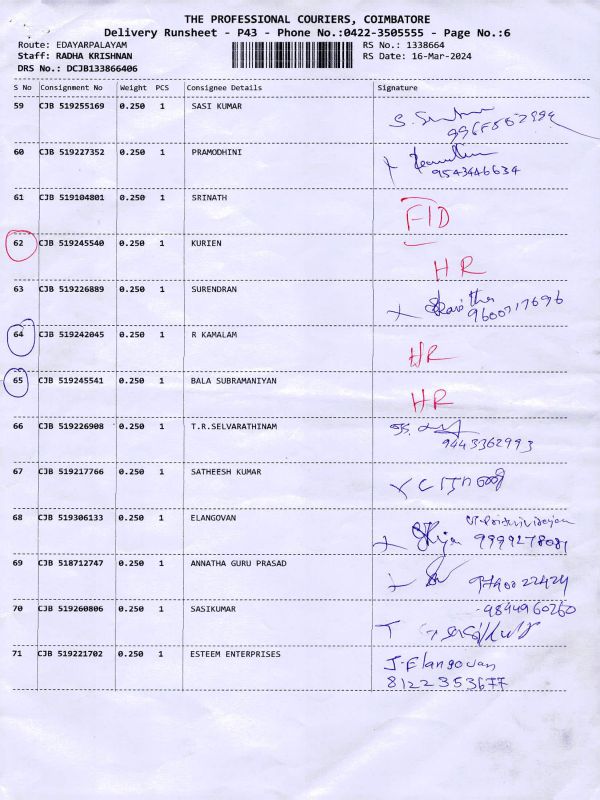 THE PROFESSIONAL COURIERS, COIMBATORE
Delivery Runsheet - P43 - Phone No.:0422-3505555 - Page No.:6
Route: EDAYARPALAYAM RS No.: 1338664
Staff: RADHA KRISHNAN RS Date: 16-Mar-2024
DRS No.: DCJB133866406
S No Consignment No Weight PCS Consignee Details Signature
59 CJB 519255169 0.250 1 SASI KUMAR
60 CJB 519227352 0.250 1 PRAMODHINI
9543446634
61 CJB 519104801 0.250 1 SRINATH
FID
62 CJB 519245540 0.250 1 KURIEN
HR
63 CJB 519226889 0.250 1 SURENDRAN
9600717696
64 CJB 519242045 0.250 1 R KAMALAM
HR
65 CJB 519245541 0.250 1 BALA SUBRAMANIYAN
HR
66 CJB 519226908 0.250 1 T.R.SELVARATHINAM
9443362993
67 CJB 519217766 0.250 1 SATHEESH KUMAR
68 CJB 519306133 0.250 1 ELANGOVAN
69 CJB 518712747 0.250 1 ANNATHA GURU PRASAD
70 CJB 519260806 0.250 1 SASIKUMAR
9844960260
71 CJB 519221702 0.250 1 ESTEEM ENTERPRISES
J-Elangovan
8122353677